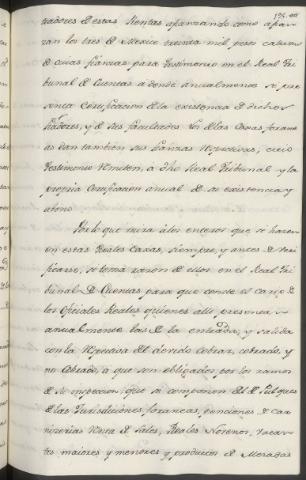 tadores de estas Rentas afianzando como afian-
zan los tres de Mexico treinta mil pesos cada uno
de cuias fianzas para testimonio en el Real Tri-
bunal de Cuentas a donde anualmente se pre-
senta Certificacion de la existencia de dichos
fiadores, y de sus facultades. Los de las Caxas forane-
as dan tambien sus fianzas respectivas, cuio
testimonio remiten a dho Real Tribunal y la
propia Certificacion anual de su existencia y
abono
Por lo que mira a los enteros que se hacen
en estas Reales Caxas, siempre, y antes de veri-
ficarse, se toma razon de ellos en el Real Tri-
bunal de Cuentas para que conste el cargo de
los Oficiales Reales quienes alli presentan
anualmente las de la entrada, y salida
con la respectiva del devido cobrar, cobrado, y
no cobrado, a que son obligados por los ramos
de su inspeccion, que se componen de el de Pulques
de las Jurisdicciones foraneas, penciones de Car-
nicerias Renta de Sales, Reales Novenos, Vacan-
tes maiores y menores y productos de Mesadas